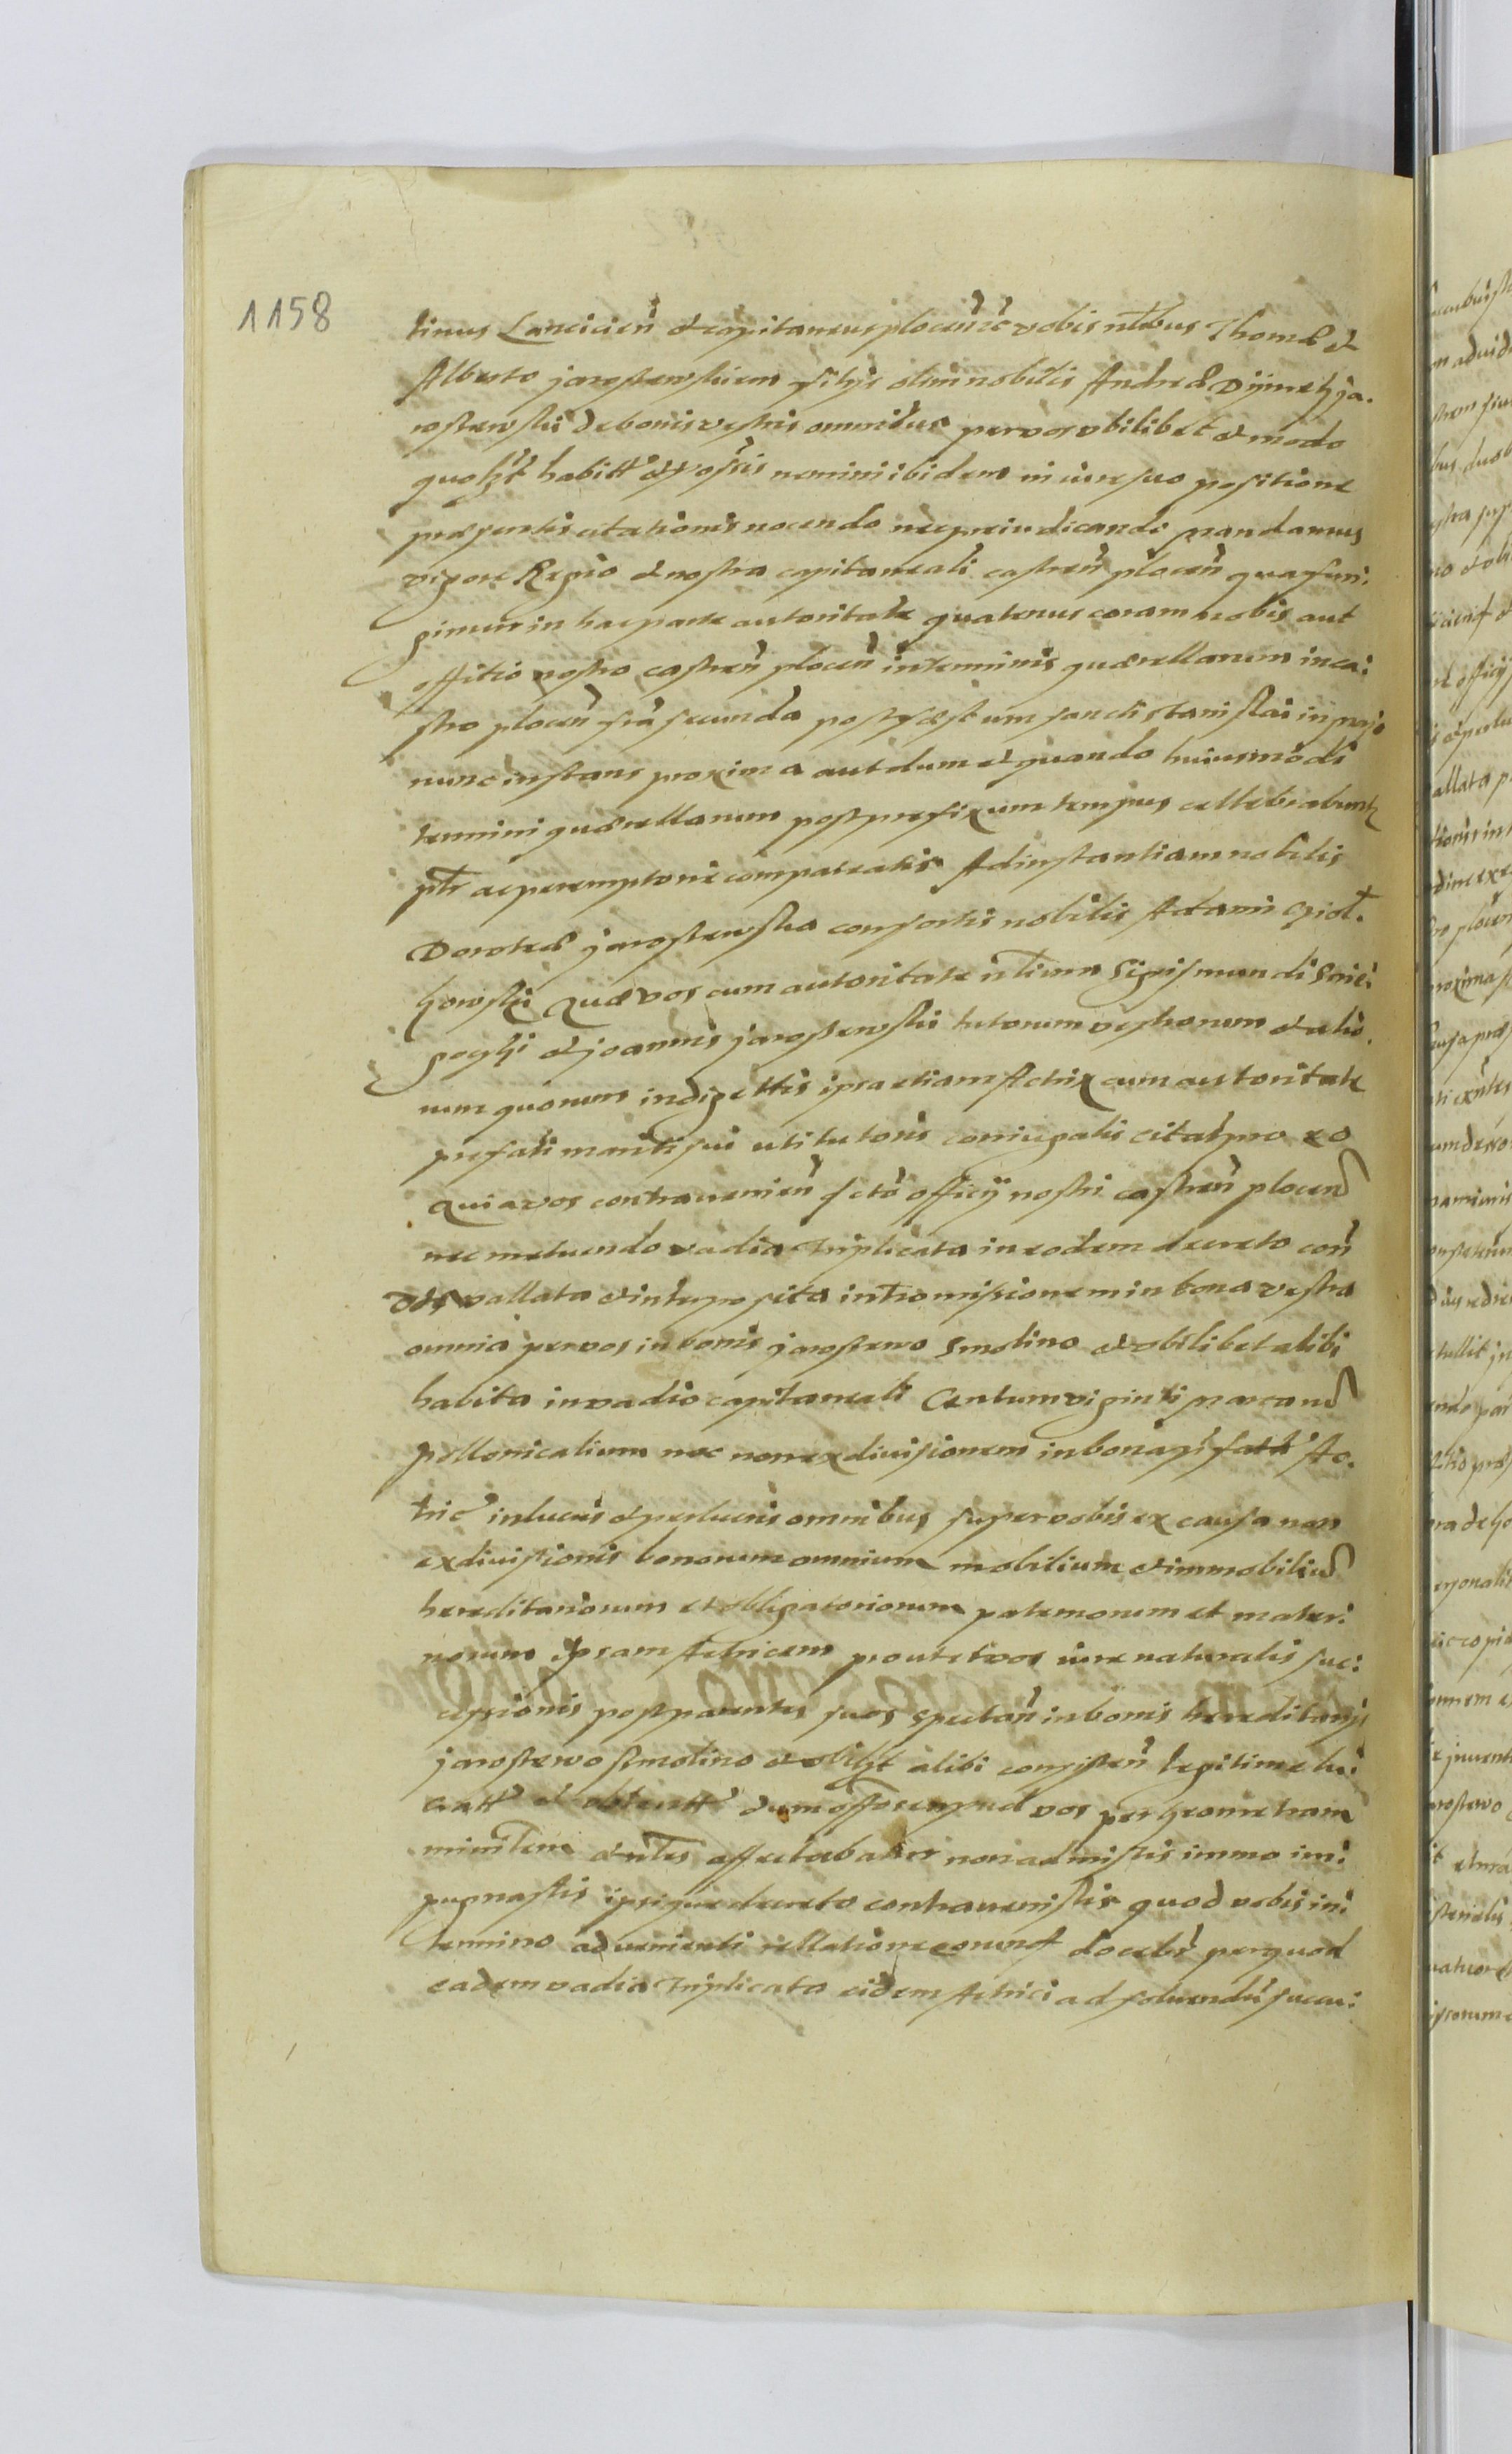 1158
tinus Lancicien̄ et capitaneus plocen̄ rc̄ vobis nlībus Thomæ et
Alberto jarostewskiem filijs olim nobilis Andreæ Dijmek ja.
rostewskii de bonis vestris omnibus per vos vbilibet et modo
quolzt habitt et possis nemini ibidem in iure suo positione
præsentis citationis nocendo nec preiudicando mandamus
vigore Regio et nostra capitaneali castren̄ plocen̄ qua fun:
gimur in hac parte autoritate quatenus coram nobis aut
offitio nostro castren̄ plocen̄ in terminis quærellarum in ca:
stro plocen̄ fr̄ia secunda post festum sancti Stanislai in
nunc instans proxima aut dum et quando huiusmodi
termini quærellarum post prefixum tempus cellebrabuntz
plr̄ ac peremptorie compareatis Ad instantiam nobilis
Doroteæ jarostewska consortis nobilis Adami
kowski Quæ vos cum autoritate nlium Sigismundi
et joannis jarostewskii tutorum vestrorum et alio.
rum quorum indigettis ipsa etiam Actrix cum autoritate
prefati mariti sui uti tutoris coniugalis citat pro eo
Quia vos contrauenien̄ officij nostri castren̄ plocen̄
nec metuendo vadia triplicata in eodem decreto con̄
vos vallata et interposita intromissionem in bona vestra
omnia per vos in bonis jarostewo Smolino et vbilibet alibi
habita in vadio capitaneali Centum viginti marcarū
pollonicalium nec non exdiuisionem in bona p̄fatæ Ac.
tric̄ in lucris et perlucris omnibus super vobis ex causa non
exdiuisionis bonorum omnium mobilium et immobiliū
hereditariorum et obligatoriorum paternorum et mater:
norum ipsam Actricem prout et vos iure naturalis suc:
cessionis post parentes suos spectan̄ in bonis hereditarijs
jarostewo Smolino et vbilzt alibi consisten̄ legitime lu:
cratt et obtentt dum apud vos per geometram
minlem et nles affectabatur non admistis immo im:
pugnastis ipsique decreto contrauenistis quod vobis in:
termino aduenienti rellatione eorund docebr̄ per quod
eadem vadia triplicata eidem Actrici ad soluendū succu: